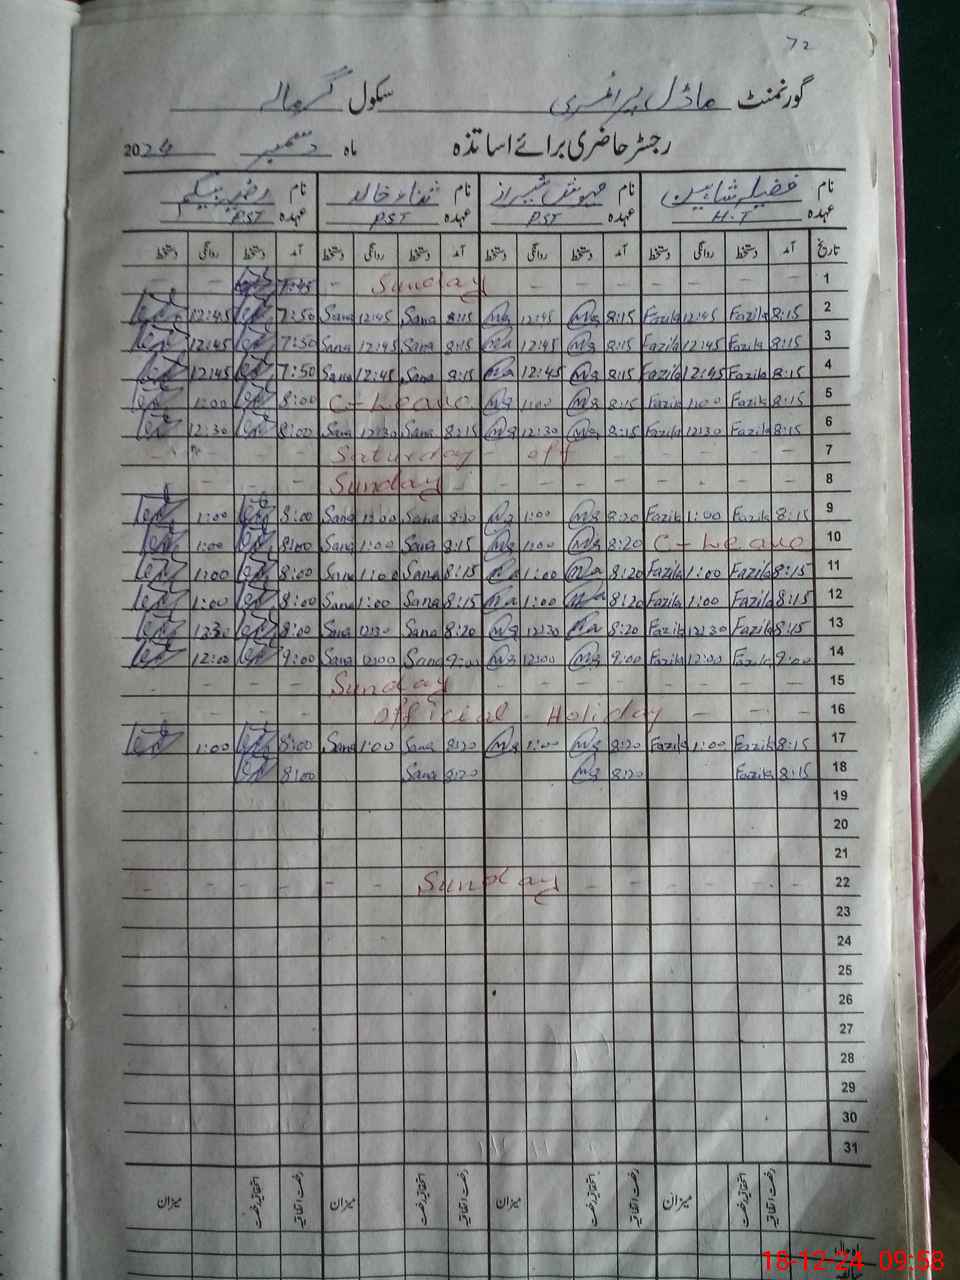 72
گورنمنٹ ماڈل پرائمری سکول گرمالہ
رجسٹر حاضری برائے اساتذہ ماہ دسمبر 2024
نام فضیلہ شاہین نام مہوش شیراز نام ثناء خالد نام رضیہ بیگم
عہدہ H.T عہدہ PST عہدہ PST عہدہ PST
تاریخ آمد دستخط روانگی دستخط آمد دستخط روانگی دستخط آمد دستخط روانگی دستخط آمد دستخط روانگی دستخط
- - - - Sunday - 7:45 - - 1
12:45 7:50 Sana 12:45 Sana 8:15 Ma 12:45 Ma 8:15 Fazila 12:45 Fazila 8:15 2
12:45 7:50 Sana 12:45 Sana 8:15 Ma 12:45 Ma 8:15 Fazila 12:45 Fazila 8:15 3
12:45 7:50 Sana 12:45 Sana 8:15 Ma 12:45 Ma 8:15 Fazila 12:45 Fazila 8:15 4
1:00 8:00 C-Leave Ma 1:00 Ma 8:15 Fazila 1:00 Fazila 8:15 5
12:30 8:00 Sana 12:30 Sana 8:15 Ma 12:30 Ma 8:15 Fazila 12:30 Fazila 8:15 6
- - - - Saturday - off - - - - - 7
- - - - Sunday - - - - - - - 8
1:00 8:00 Sana 1:00 Sana 8:20 Ma 1:00 Ma 8:20 Fazila 1:00 Fazila 8:15 9
1:00 8:00 Sana 1:00 Sana 8:15 Ma 1:00 Ma 8:20 C-Leave 10
1:00 8:00 Sana 1:00 Sana 8:15 Ma 1:00 Ma 8:20 Fazila 1:00 Fazila 8:15 11
1:00 8:00 Sana 1:00 Sana 8:15 Ma 1:00 Ma 8:20 Fazila 1:00 Fazila 8:15 12
12:30 8:00 Sana 12:30 Sana 8:20 Ma 12:30 Ma 8:20 Fazila 12:30 Fazila 8:15 13
12:00 9:00 Sana 12:00 Sana 9:00 Ma 12:00 Ma 9:00 Fazila 12:00 Fazila 9:00 14
- - - - Sunday - - - - - - - 15
- - - - official - Holiday - - - 16
1:00 8:00 Sana 1:00 Sana 8:20 Ma 1:00 Ma 8:20 Fazila 1:00 Fazila 8:15 17
8:00 Sana 8:20 Ma 8:20 Fazila 8:15 18
19
20
21
- - - - - - Sunday - - - - - 22
23
24
25
26
27
28
29
30
31
رخصت اتفاقیہ میزان رخصت اتفاقیہ میزان رخصت اتفاقیہ میزان رخصت اتفاقیہ میزان
18-12-24 09:58